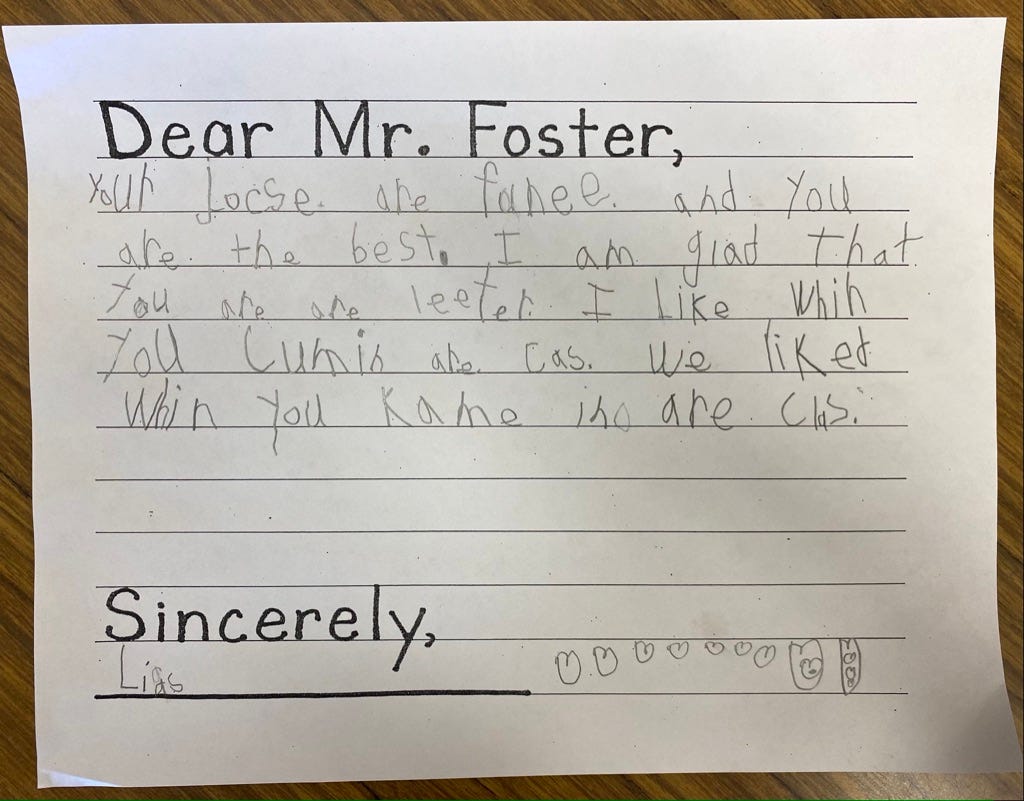 Dear Mr. Foster,
Your Jocse. are fanee. and You
are. the best. I am glad that.
You are are leeter. I Like Whin
You Cumin are. Cas. We liked
Whin you Kame ino are. Clas.
Sincerely,